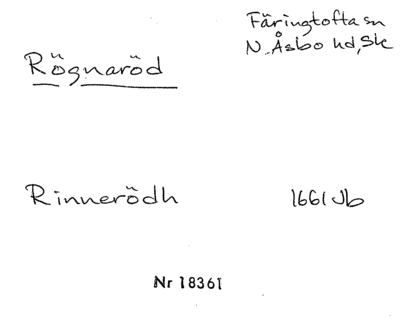 Färingtofta sn
N. Åsbo hd, Sk
Rögnaröd
Rinnerödh 1661 Jb
Nr 18361